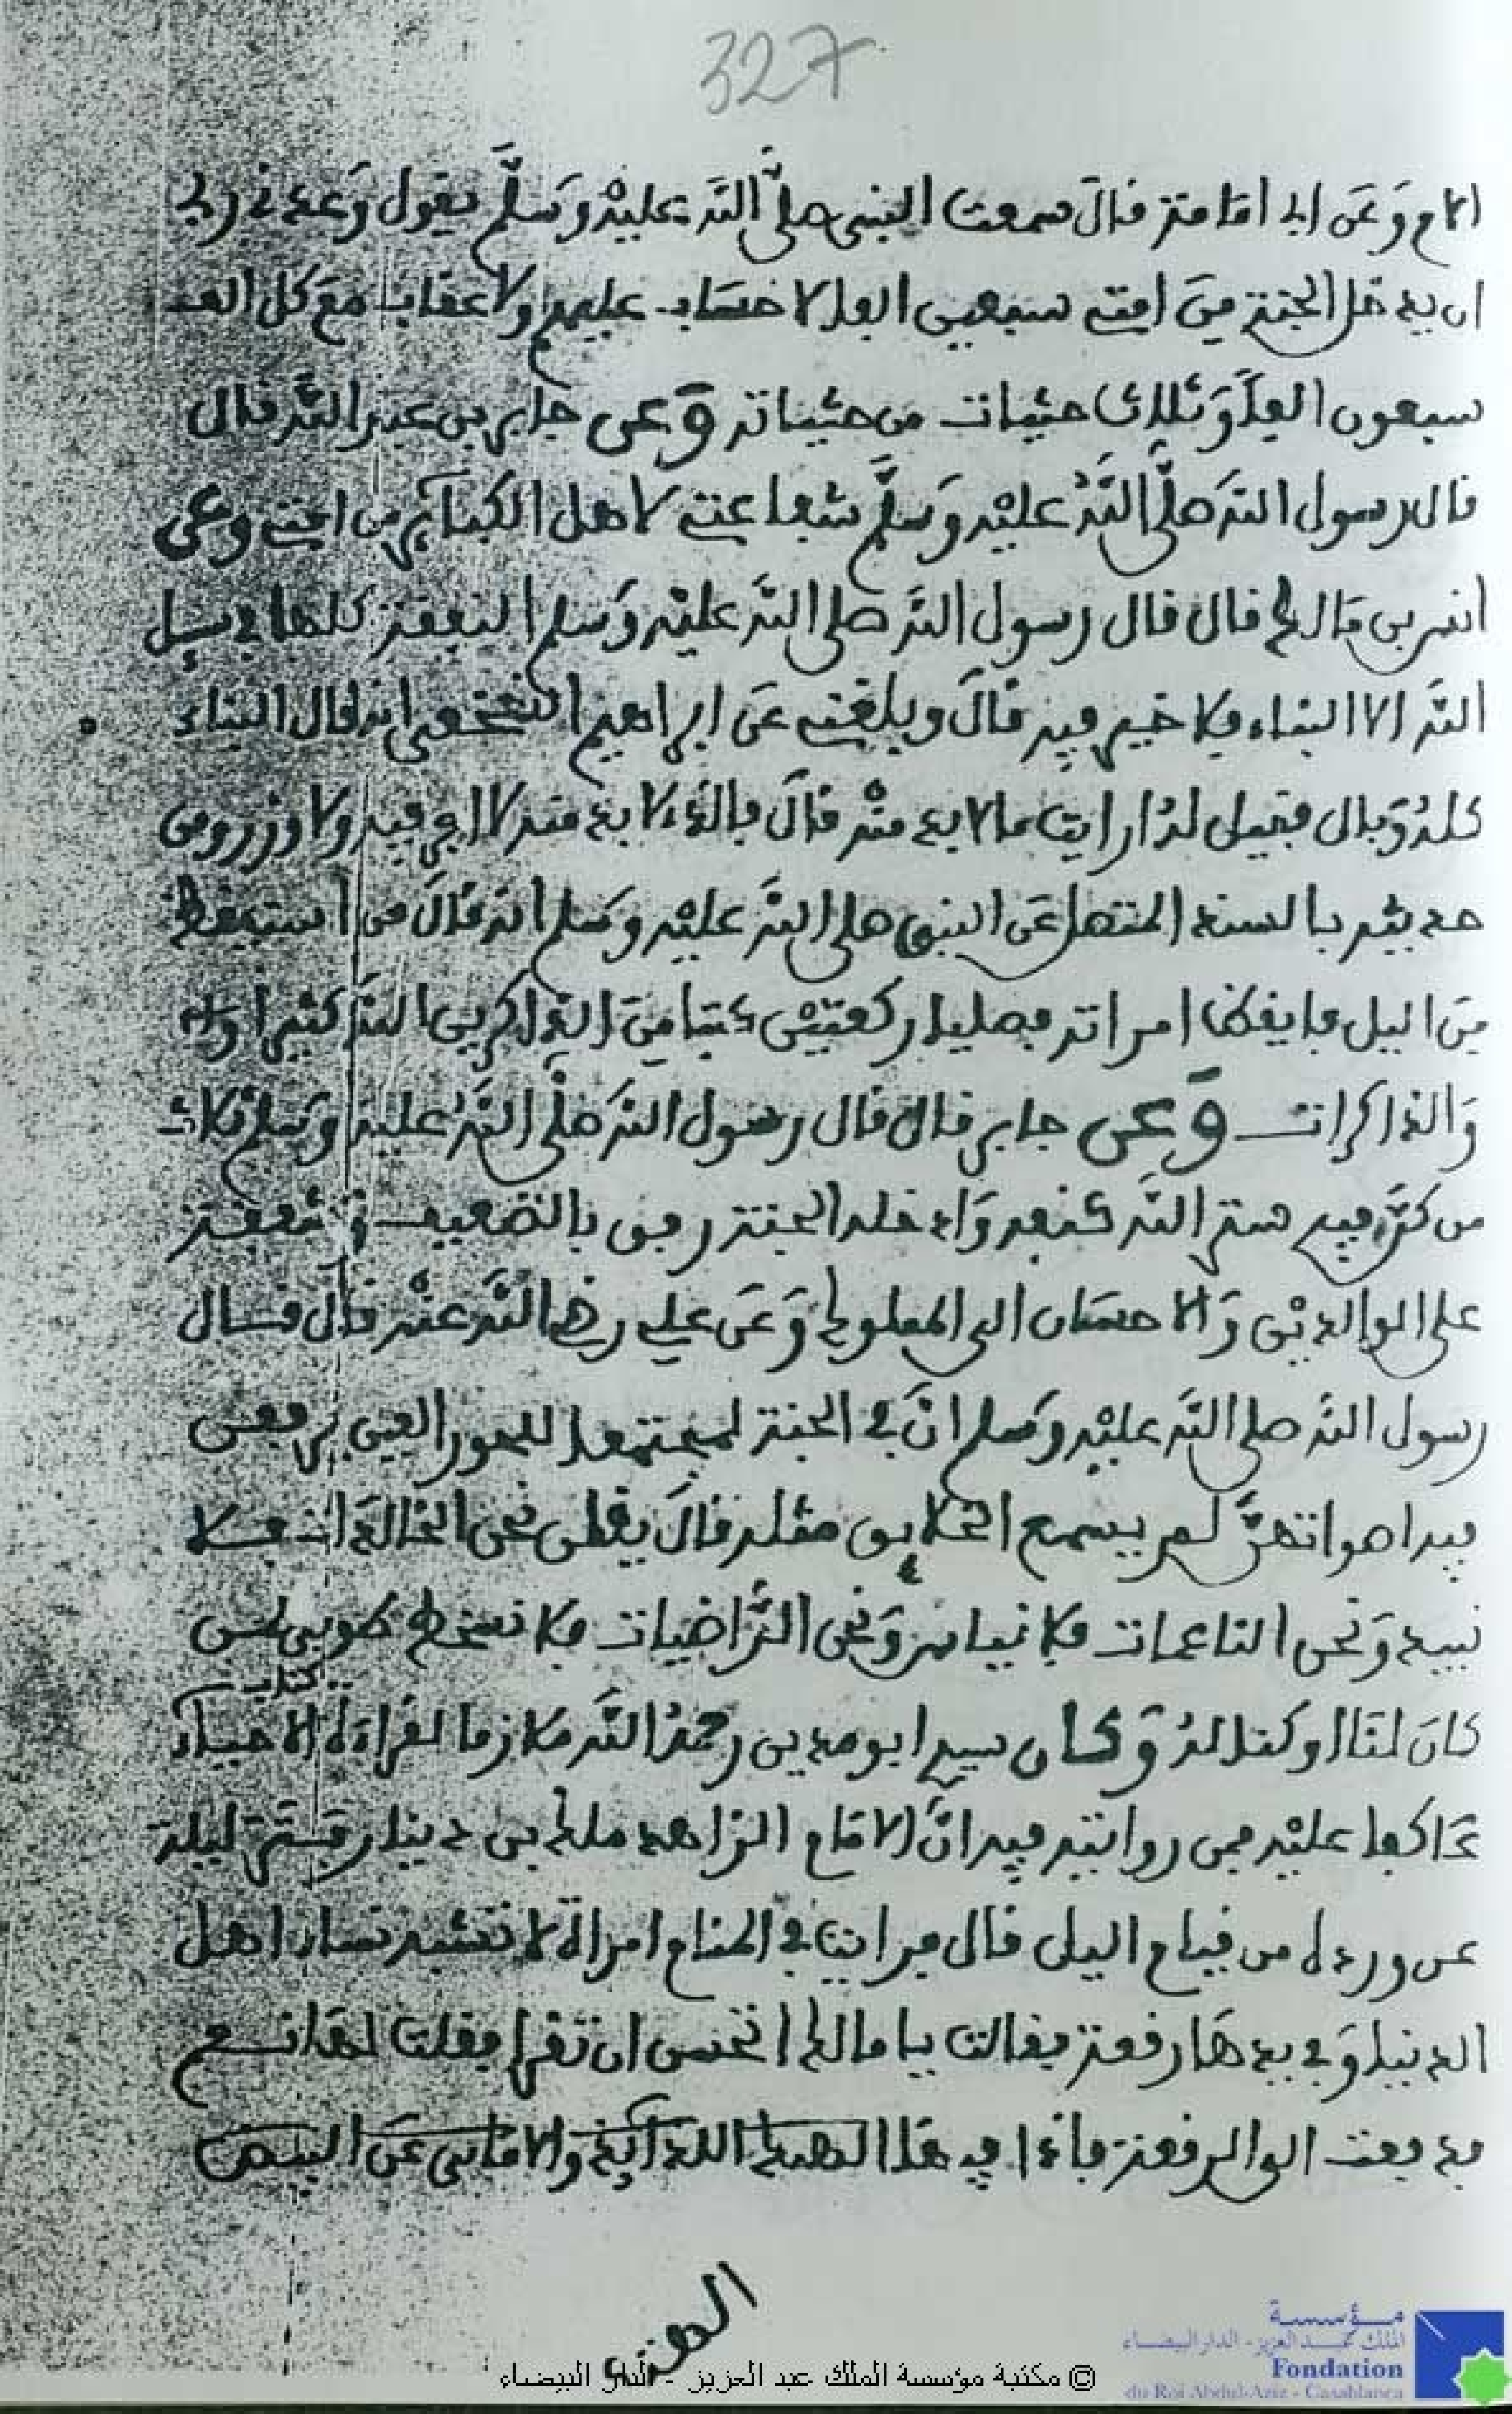 327
الامم وَعَن ابي امامة قال سمعت النبي صلى اللهُ عليهْ وَسَلَّم يقول وَعدني ربي
ان يدخل الجنة مِنَ امتي سبعين الفا لا حسَاب عليهم ولا عقاب مَع كل الف
سبعون الفا وَثلاث حثيات من حثياته وَعن جابر بن عبد الله قال
قال رسول الله صَلَّى اللهُ عليْه وَسَلَّم شفاعتي لاهل الكبائر من امتي وعن
انس بن مَالك قال قال رسول الله صلى الله عليْه وَسلم النفقة كلها في سبيل
الله الا البناء فلا خير فيه قالَ وبلغني عَن ابراهيم النخعي انه قال البناء
كلهُ وَبال فقيل لهُ ارايت مالا بد منْه قالَ مالا بد منه لا اجر فيه ولا وزر ومن
حديثه بالسند المتصل عَن النبي صلى الله عليْه وسَلم انه قالَ من استيقظ
مِنَ اليل وايقظ امراته فصليا ركعتين كتبا مِنَ الذاكرين الله كثيرا
وَالذاكرات وَعن جابر قال قال رسول الله صَلّى اللهُ عليه وَسلم ثلاث
من كنّ فيه ستر الله كنفه وَادخله الجنة رفق بالضعيف وَشفقة
على الوالديْن وَالاحسَان الى المملوك وَعَن علي رضي الله عنْه قالَ قال
رسول الله صلى الله عليْه وَسلم انَّ في الجنة لمجتمعا للحور العين يرفعن
فيه اصواتهنّ لم يسمع الخلايق مثله قالَ يقلن نحن الخالدَات فلا
نبيد وَنحن الناعمات فلا نباس وَنحن الرَّاضيات فلا نسخط طوبى لمن
كتاب
كانَ لنَا او كنا لهُ وَكان سيدي ابو مدين رحمهُ الله ملازما لقراءة الاحياء
عَاكفا عليْه فمن روايته فيه انَّ الامَام الزاهد مالك بن دينار ليلة
عن ورده من قيام اليل قال فرايت في المنام امراة لا تشبه نساء اهل
الدنيا وَفي يدهَا رقعة فقالت يا مالك اتحسن ان تقرا فقلت لهَا نعم
فدفعت الي الرقعة فاذا فيها االهتك اللذائذ والامَاني عَن البيض
© مكتبة مؤسسة الملك عبد العزيز - الدار البيضاء
مؤسسة
الملك عبد العزيز - الدار البيضاء
Fondation
du Roi Abdul-Aziz - Casablanca